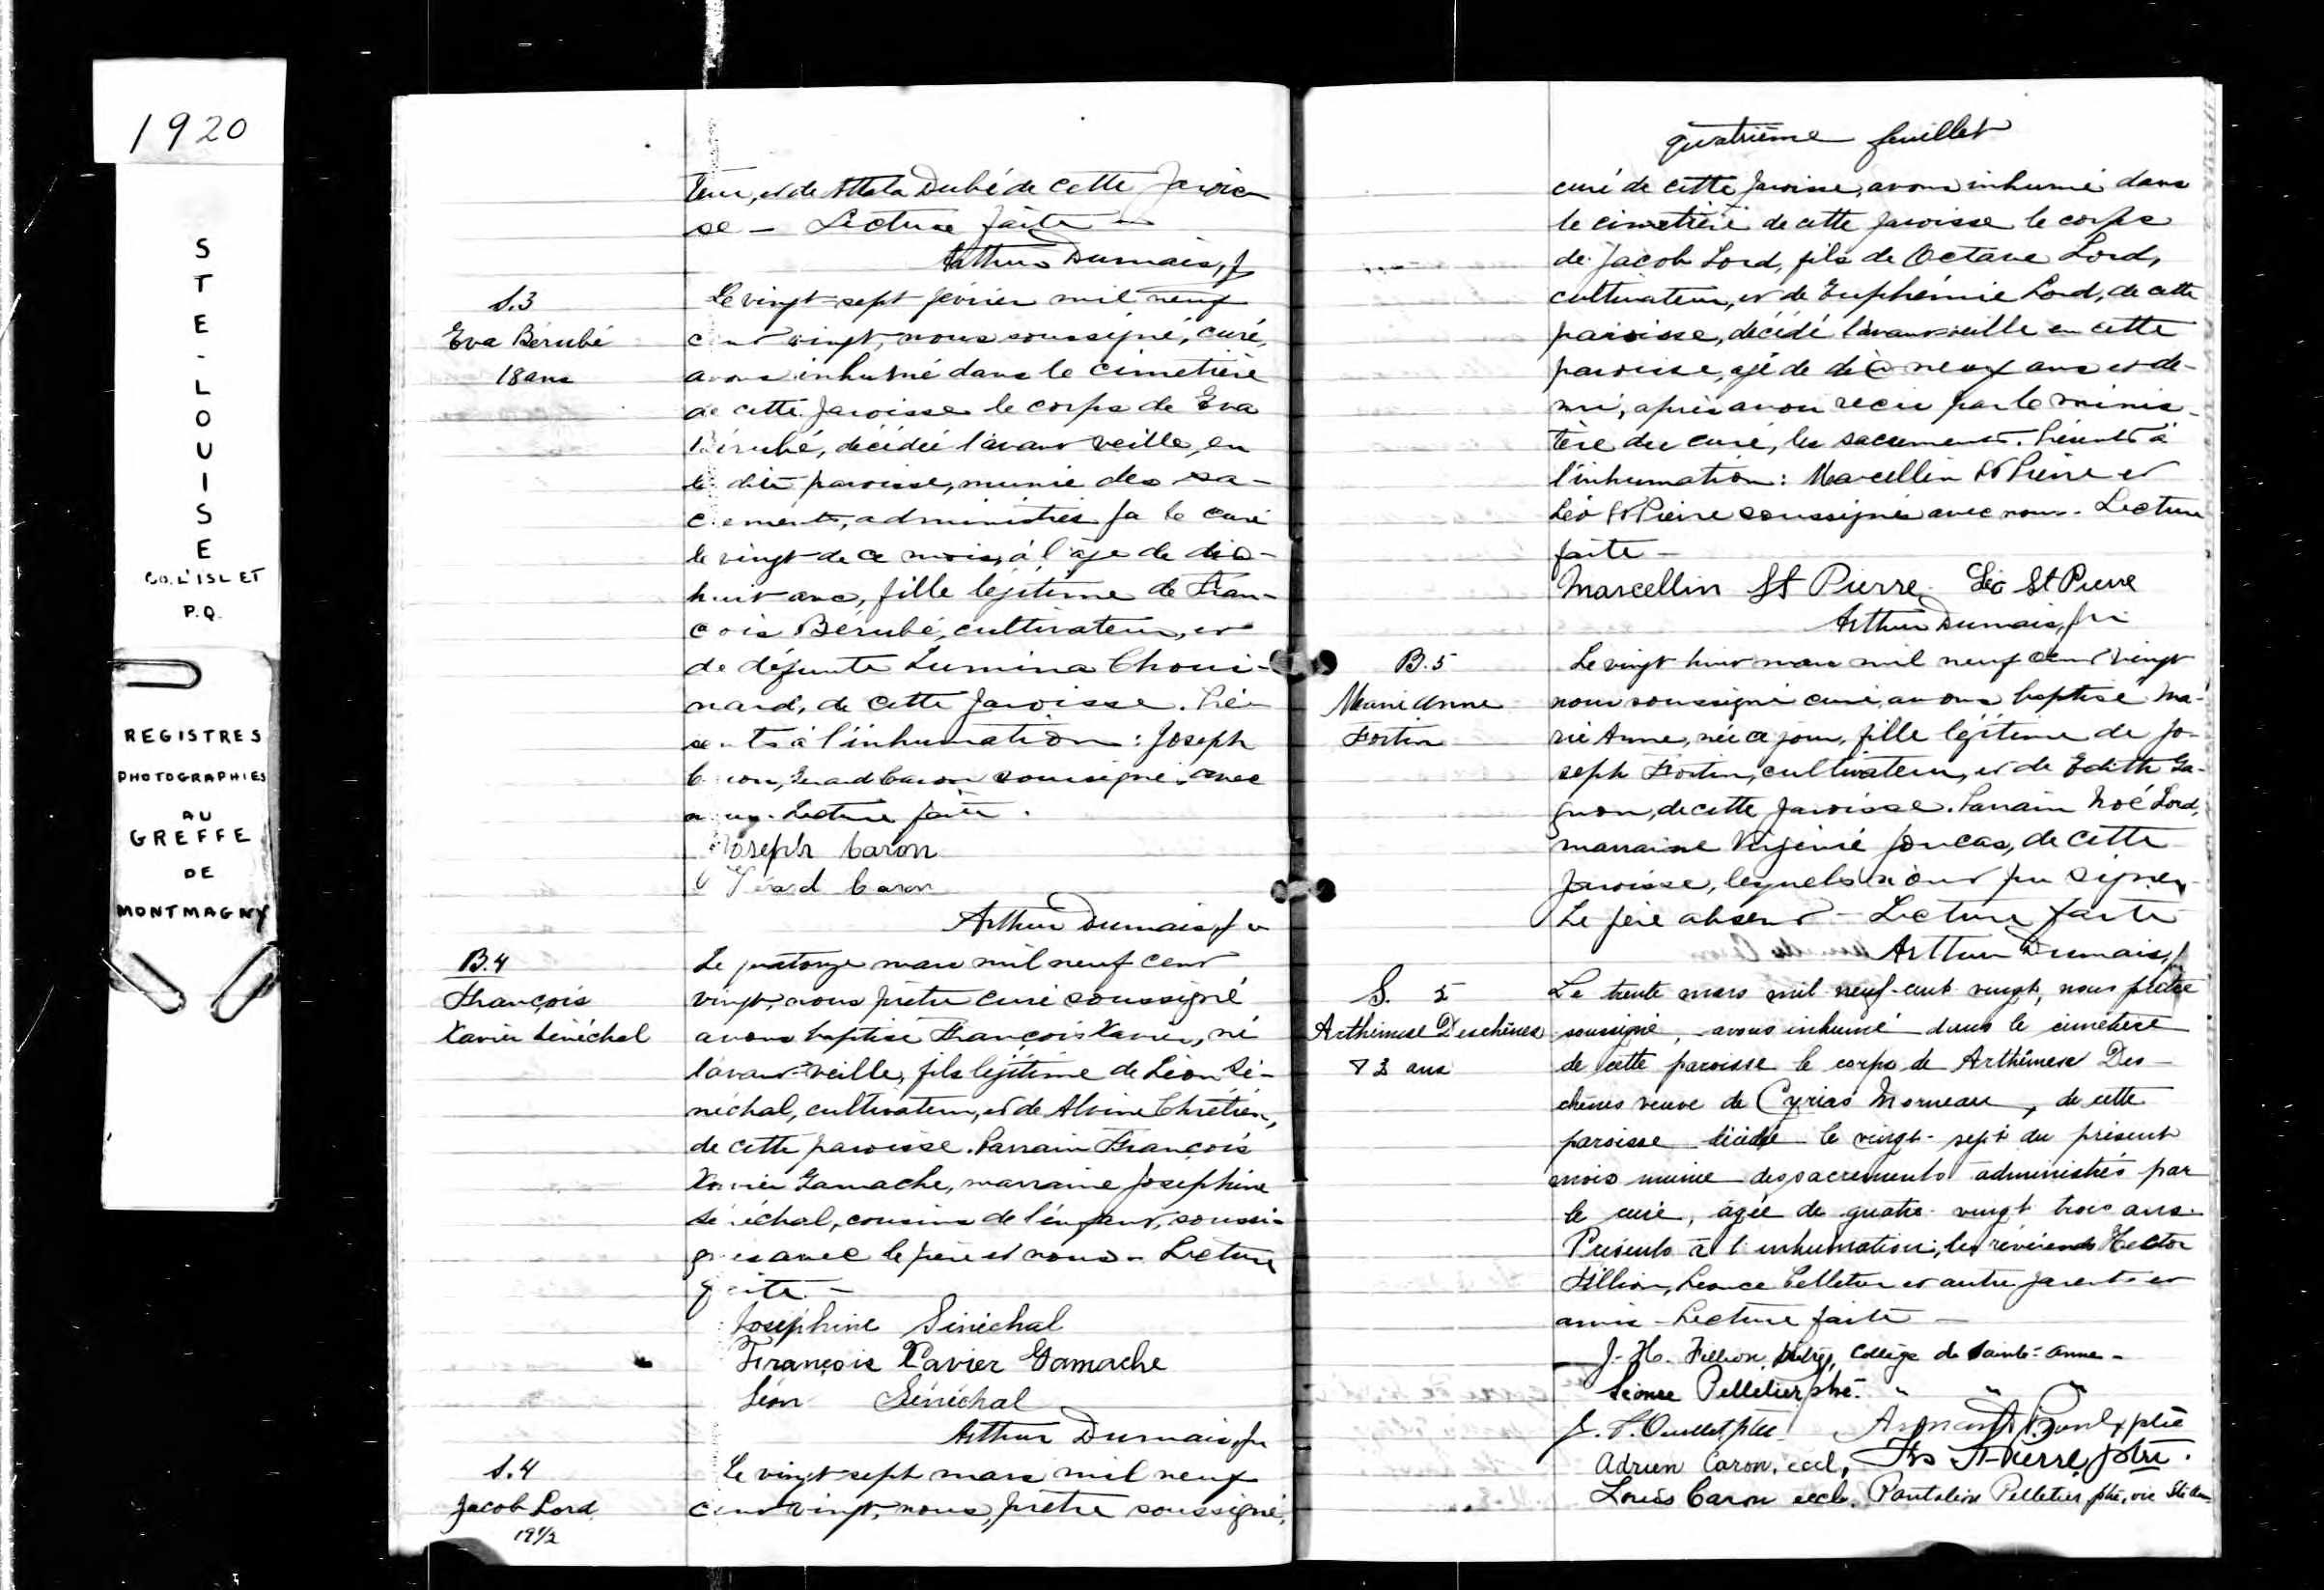 1920
STE-LOUISE
CO. L'ISLET
P.Q.
REGISTRES
PHOTOGRAPHIES
AU
GREFFE
DE
MONTMAGNY
teur, et de Attala Dubé de cette parois
se — Lecture faite —
Arthur Dumais, p
S.3
Eva Bérubé
18 ans
Le vingt-sept février mil neuf
cent vingt, nous soussigné, curé,
avons inhumé dans le cimetière
de cette paroisse le corps de Eva
Bérubé, décédée l'avant veille, en
la dite paroisse, munie des sa-
crements, administrés pa le curé
le vingt de ce mois, à l'âge de dix-
huit ans, fille légitime de Fran-
cois Bérubé, cultivateur, et
de défunte Lumina Choui-
nard, de cette paroisse. Pré-
sents à l'inhumation : Joseph
Caron, Gérard Caron soussignés avec
nous. Lecture faite.
Joseph Caron
Gérard Caron
Arthur Dumais, p
B.4
François
Xavier Sénéchal
Le quatorze mars mil neuf cent
vingt, nous prêtre curé soussigné
avons baptisé François Xavier, né
l'avant-veille, fils légitime de Léon Sé-
néchal, cultivateur, et de Alvine Chrétien,
de cette paroisse. Parrain François
Xavier Gamache, marraine Josephine
Sénéchal, cousins de l'enfant, soussi-
gnés avec le père et nous. Lecture
faite. —
Josephine Sénéchal
François Xavier Gamache
Léon Sénéchal
Arthur Dumais, p
S.4
Jacob Lord
19 1/2
Le vingt-sept mars mil neuf
cent vingt, nous, prêtre soussigné,
quatrième feuillet
curé de cette paroisse, avons inhumé dans
le cimetière de cette paroisse le corps
de Jacob Lord, fils de Octave Lord,
cultivateur, et de Euphémie Lord, de cette
paroisse, décédé l'avant veille en cette
paroisse, âgé de dix neuf ans et de-
mi, après avoir reçu par le minis-
tère du curé, les sacrements. Présents à
l'inhumation : Marcellin St Pierre et
Léo St Pierre soussignés avec nous. Lecture
faite —
Marcellin St Pierre Léo St Pierre
Arthur Dumais, p
B.5
Marie Anne
Fortin
Le vingt huit mars mil neuf cent vingt
nous soussigné curé, avons baptisé Ma-
rie Anne, née ce jour, fille légitime de Jo-
seph Fortin, cultivateur, et de Edith Ga-
gnon, de cette paroisse. Parrain Noé Lord,
marraine Virginie Joncas, de cette
paroisse, lesquels n'ont pu signer.
Le père absent — Lecture faite
Arthur Dumais, p
S. 5
Arthémise Deschênes
83 ans
Le trente mars mil neuf-cent vingt, nous prêtre
soussigné, avons inhumé dans le cimetière
de cette paroisse le corps de Arthémise Des-
chênes veuve de Cyrias Morneau, de cette
paroisse décédée le vingt-sept du présent
mois munie des sacrements administrés par
le curé, âgée de quatre-vingt trois ans.
Présents à l'inhumation; les révérends Hector
Fillion, Léonce Pelletier et autres parents et
amis — Lecture faite —
J.-H. Fillion, ptre, Collège de Sainte-Anne —
Léonce Pelletier ptre. " " "
J. P. Ouellet ptre ptre
Adrien Caron, eccl, Ths St-Pierre, ptre.
Louis Caron eccl. Pantaléon Pelletier ptre, vic